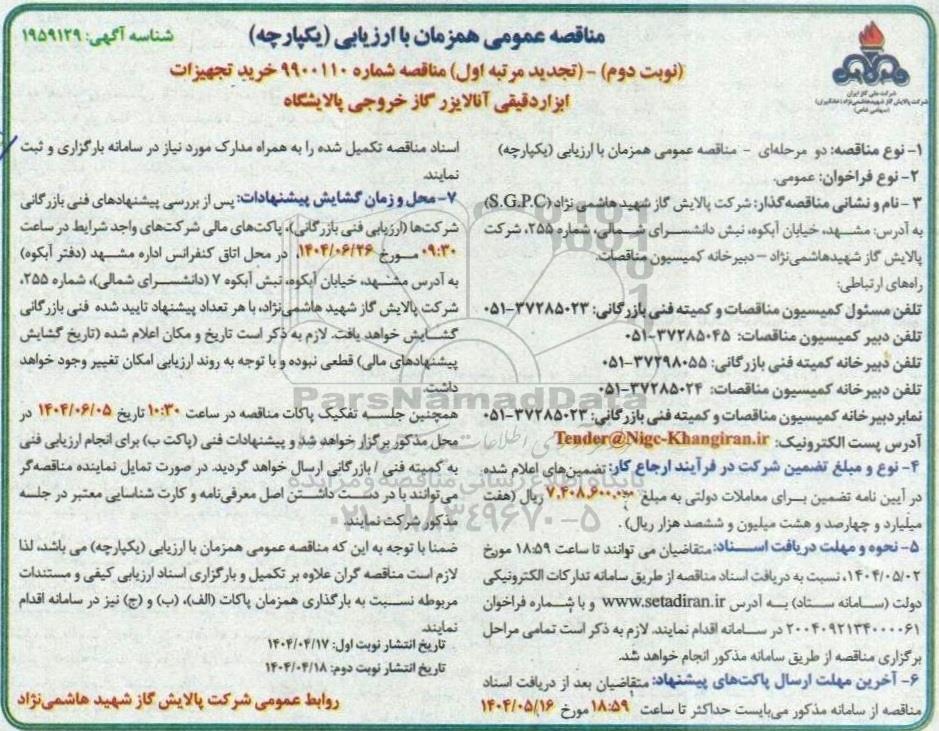 مناقصه عمومی همزمان با ارزیابی (یکپارچه)
شناسه آگهی: ۱۹۵۹۱۲۹
(نوبت دوم) - (تجدید مرتبه اول) مناقصه شماره ۹۹۰۰۱۱۰ خرید تجهیزات
ابزاردقیقی آنالایزر گاز خروجی پالایشگاه
شرکت ملی گاز ایران
شرکت پالایش گاز شهیدهاشمی‌نژاد (خانگیران)
(سهامی خاص)
۱- نوع مناقصه: دو مرحله‌ای - مناقصه عمومی همزمان با ارزیابی (یکپارچه)
۲- نوع فراخوان: عمومی.
۳- نام و نشانی مناقصه‌گذار: شرکت پالایش گاز شهید هاشمی نژاد (S.G.P.C)
به آدرس: مشهد، خیابان آبکوه، نبش دانشسرای شمالی، شماره ۲۵۵، شرکت
پالایش گاز شهیدهاشمی‌نژاد – دبیرخانه کمیسیون مناقصات.
راه‌های ارتباطی:
تلفن مسئول کمیسیون مناقصات و کمیته فنی بازرگانی: ۳۷۲۸۵۰۲۳-۰۵۱
تلفن دبیر کمیسیون مناقصات: ۳۷۲۸۵۰۴۵-۰۵۱
تلفن دبیرخانه کمیته فنی بازرگانی: ۳۷۲۹۸۰۵۵-۰۵۱
تلفن دبیرخانه کمیسیون مناقصات: ۳۷۲۸۵۰۲۴-۰۵۱
نمابر دبیرخانه کمیسیون مناقصات و کمیته فنی بازرگانی: ۳۷۲۸۵۰۲۳-۰۵۱
آدرس پست الکترونیک: Tender@Nigc-Khangiran.ir
۴- نوع و مبلغ تضمین شرکت در فرآیند ارجاع کار: تضمین‌های اعلام شده
در آیین نامه تضمین برای معاملات دولتی به مبلغ ۷,۴۰۸,۶۰۰,۰۰۰ ریال (هفت
میلیارد و چهارصد و هشت میلیون و ششصد هزار ریال).
۵- نحوه و مهلت دریافت اسناد: متقاضیان می توانند تا ساعت ۱۸:۵۹ مورخ
۱۴۰۴/۰۵/۰۲، نسبت به دریافت اسناد مناقصه از طریق سامانه تدارکات الکترونیکی
دولت (سامانه ستاد) به آدرس www.setadiran.ir و با شماره فراخوان
۲۰۰۴۰۹۲۱۳۴۰۰۰۰۶۱ در سامانه اقدام نمایند. لازم به ذکر است تمامی مراحل
برگزاری مناقصه از طریق سامانه مذکور انجام خواهد شد.
۶- آخرین مهلت ارسال پاکت‌های پیشنهاد: متقاضیان بعد از دریافت اسناد
مناقصه از سامانه مذکور می‌بایست حداکثر تا ساعت ۱۸:۵۹ مورخ ۱۴۰۴/۰۵/۱۶
اسناد مناقصه تکمیل شده را به همراه مدارک مورد نیاز در سامانه بارگزاری و ثبت
نمایند.
۷- محل و زمان گشایش پیشنهادات: پس از بررسی پیشنهادهای فنی بازرگانی
شرکت‌ها (ارزیابی فنی بازرگانی)، پاکت‌های مالی شرکت‌های واجد شرایط در ساعت
۰۹:۳۰ مورخ ۱۴۰۴/۰۶/۲۶، در محل اتاق کنفرانس اداره مشهد (دفتر آبکوه)
به آدرس مشهد، خیابان آبکوه، نبش آبکوه ۷ (دانشسرای شمالی)، شماره ۲۵۵،
شرکت پالایش گاز شهید هاشمی‌نژاد، با هر تعداد پیشنهاد تایید شده فنی بازرگانی
گشایش خواهد یافت. لازم به ذکر است تاریخ و مکان اعلام شده (تاریخ گشایش
پیشنهادهای مالی) قطعی نبوده و با توجه به روند ارزیابی امکان تغییر وجود خواهد
داشت.
همچنین جلسه تفکیک پاکات مناقصه در ساعت ۱۰:۳۰ تاریخ ۱۴۰۴/۰۶/۰۵ در
محل مذکور برگزار خواهد شد و پیشنهادات فنی (پاکت ب) برای انجام ارزیابی فنی
به کمیته فنی / بازرگانی ارسال خواهد گردید. در صورت تمایل نماینده مناقصه‌گر
می‌توانند با در دست داشتن اصل معرفی‌نامه و کارت شناسایی معتبر در جلسه
مذکور شرکت نمایند.
ضمنا با توجه به این که مناقصه عمومی همزمان با ارزیابی (یکپارچه) می باشد، لذا
لازم است مناقصه گران علاوه بر تکمیل و بارگزاری اسناد ارزیابی کیفی و مستندات
مربوطه نسبت به بارگذاری همزمان پاکات (الف)، (ب) و (ج) نیز در سامانه اقدام
نمایند.
تاریخ انتشار نوبت اول: ۱۴۰۴/۰۴/۱۷
تاریخ انتشار نوبت دوم: ۱۴۰۴/۰۴/۱۸
روابط عمومی شرکت پالایش گاز شهید هاشمی‌نژاد
ParsNamadData
پایگاه اطلاع رسانی مناقصه و مزایده
۰۲۱-۸۸۳۴۹۶۷۰-۵